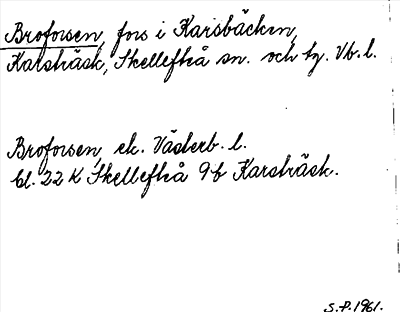 Broforsen, fors i Karsbäcken,
Karsträsk, Skellefteå sn. och tg. Vb. l.
Broforsen, ek. Västerb. l.
bl. 22 K Skellefteå 9b Karsträsk.
S.P. 1961.